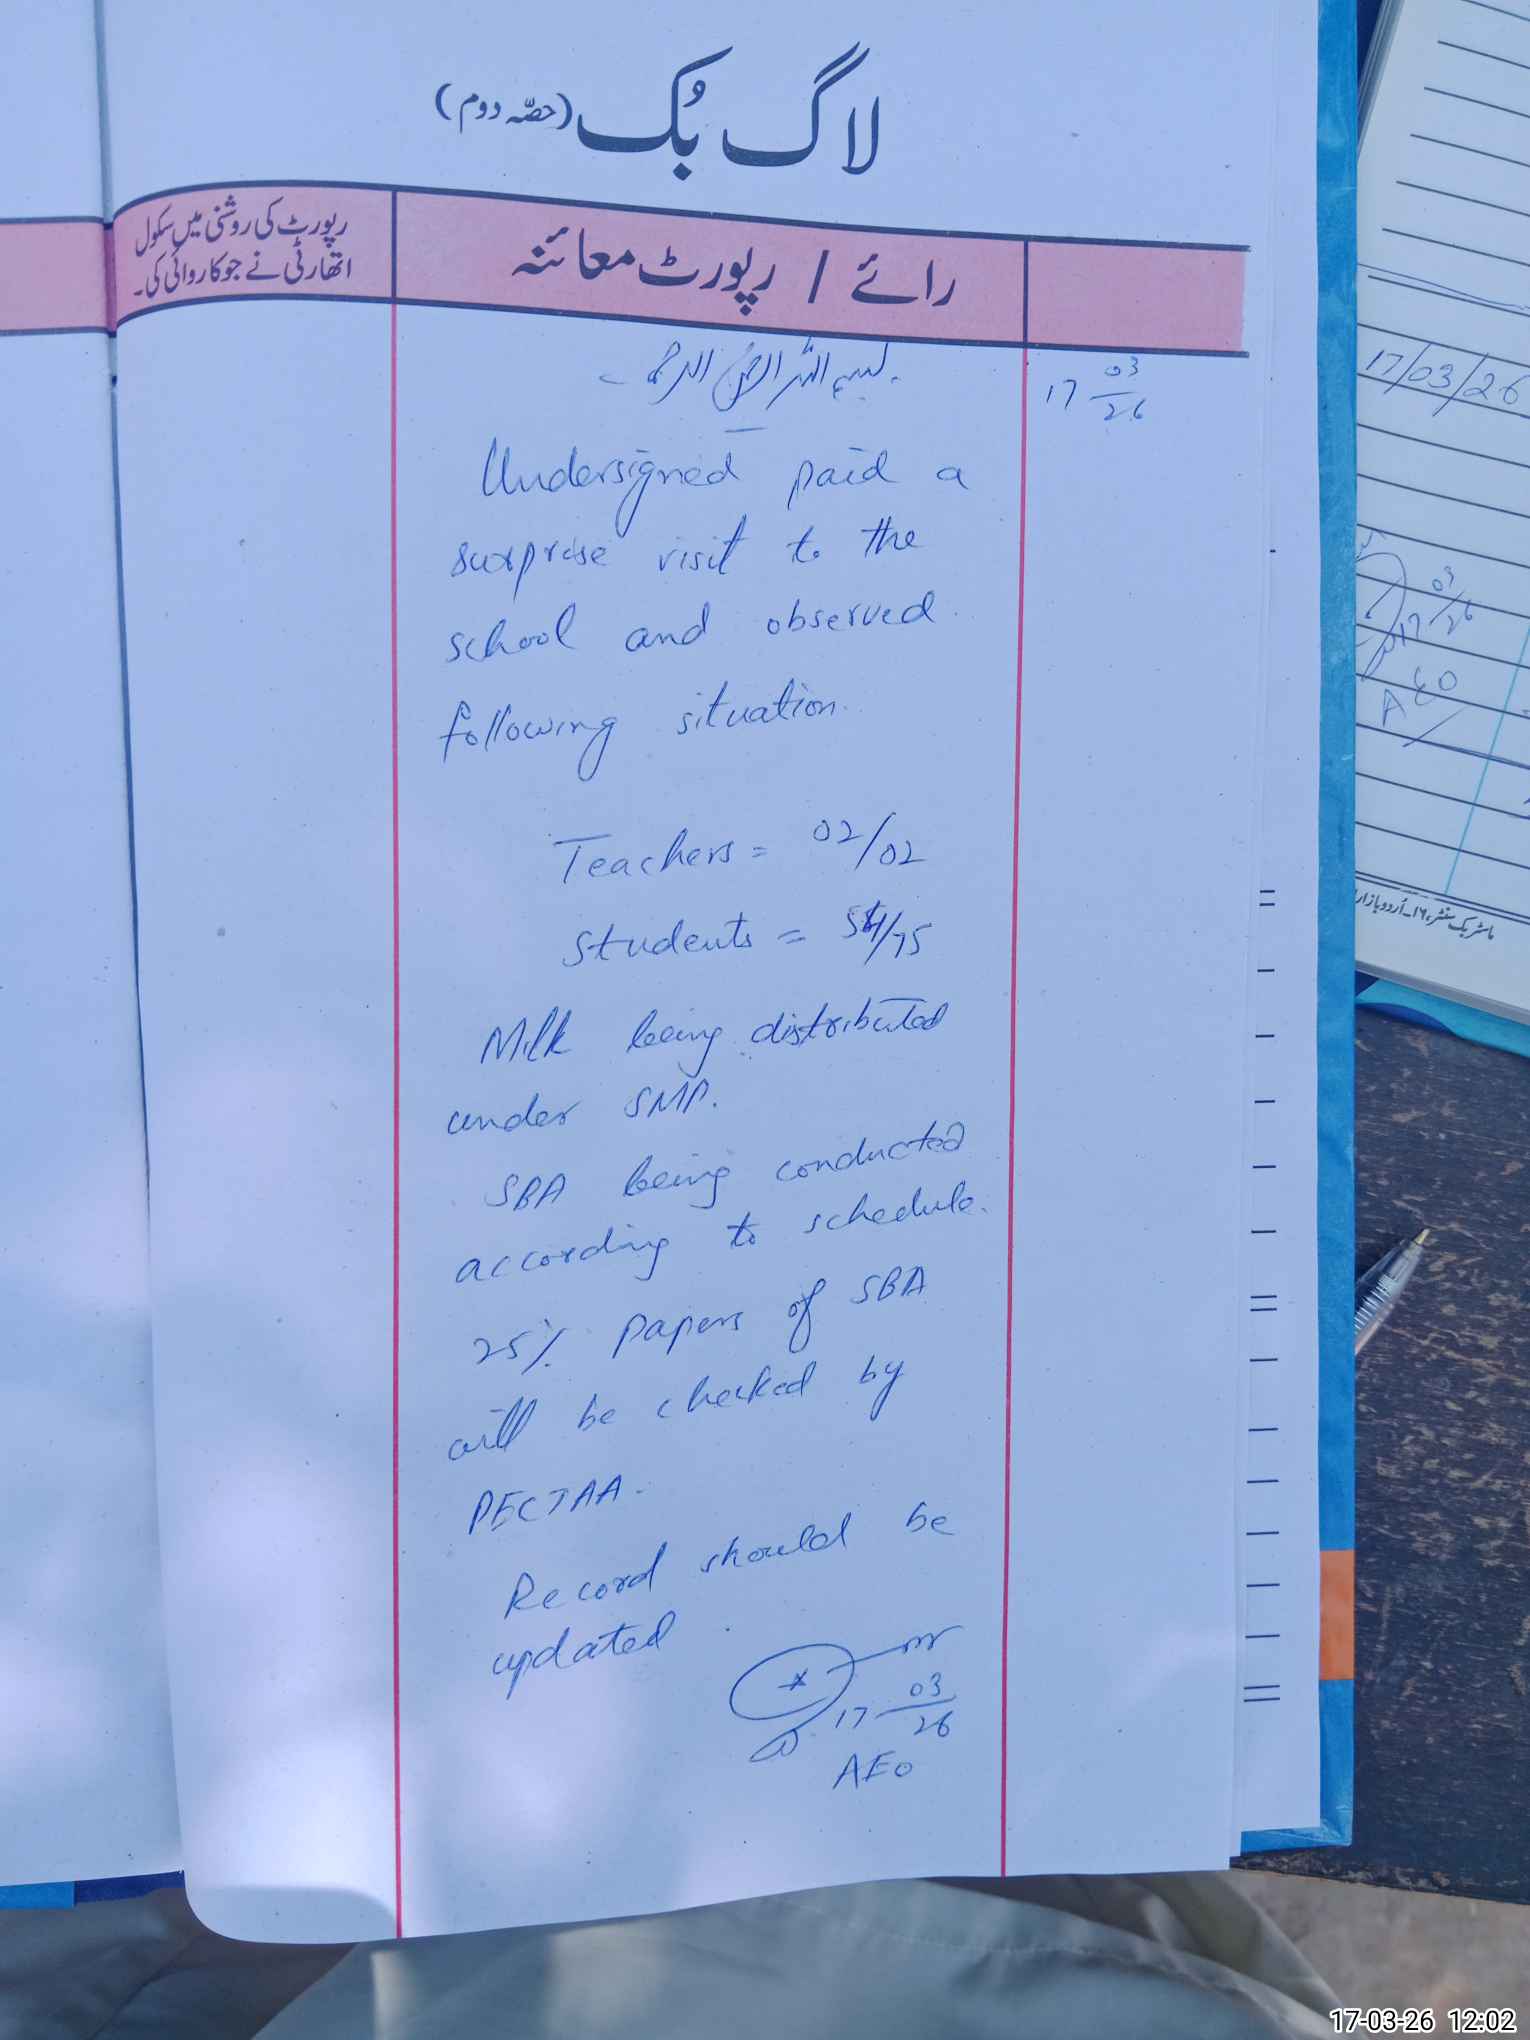 لاگ بُک (حصّہ دوم)
رائے / رپورٹ معائنہ
رپورٹ کی روشنی میں سکول
اتھارٹی نے جو کاروائی کی۔
17 03/26
بسم اللہ الرحمٰن الرحیم
Undersigned paid a
surprise visit to the
school and observed
following situation.
Teachers = 02/02
Students = /75
Milk being distributed
under SMP.
SBA being conducted
according to schedule.
25% papers of SBA
will be checked by
PECTAA.
Record should be
updated
17 03/26
AEO
17/03/26
17 03/26
AEO
اردو بازار
17-03-26 12:02